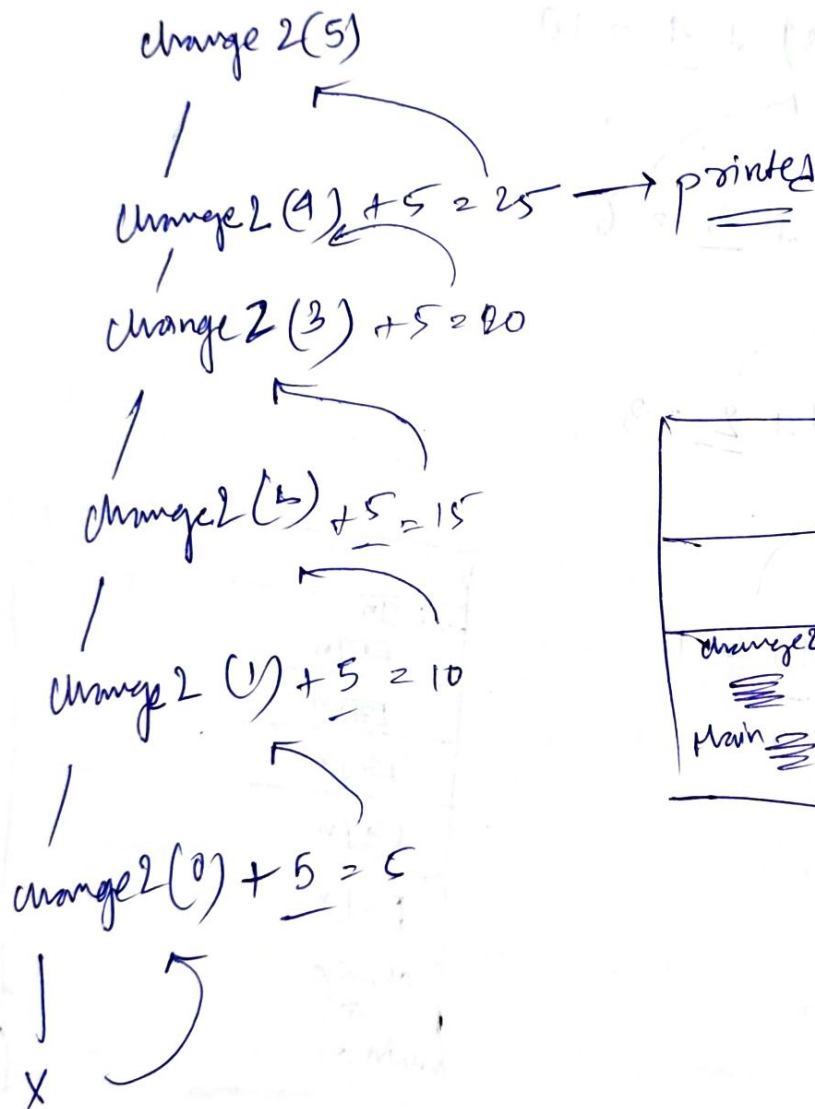 change 2(5)
change2 (4) + 5 = 25 → printed
change 2 (3) + 5 = 20
change2 ( ) + 5 = 15
change 2 (1) + 5 = 10
change2 (0) + 5 = 5
X
change2
Main